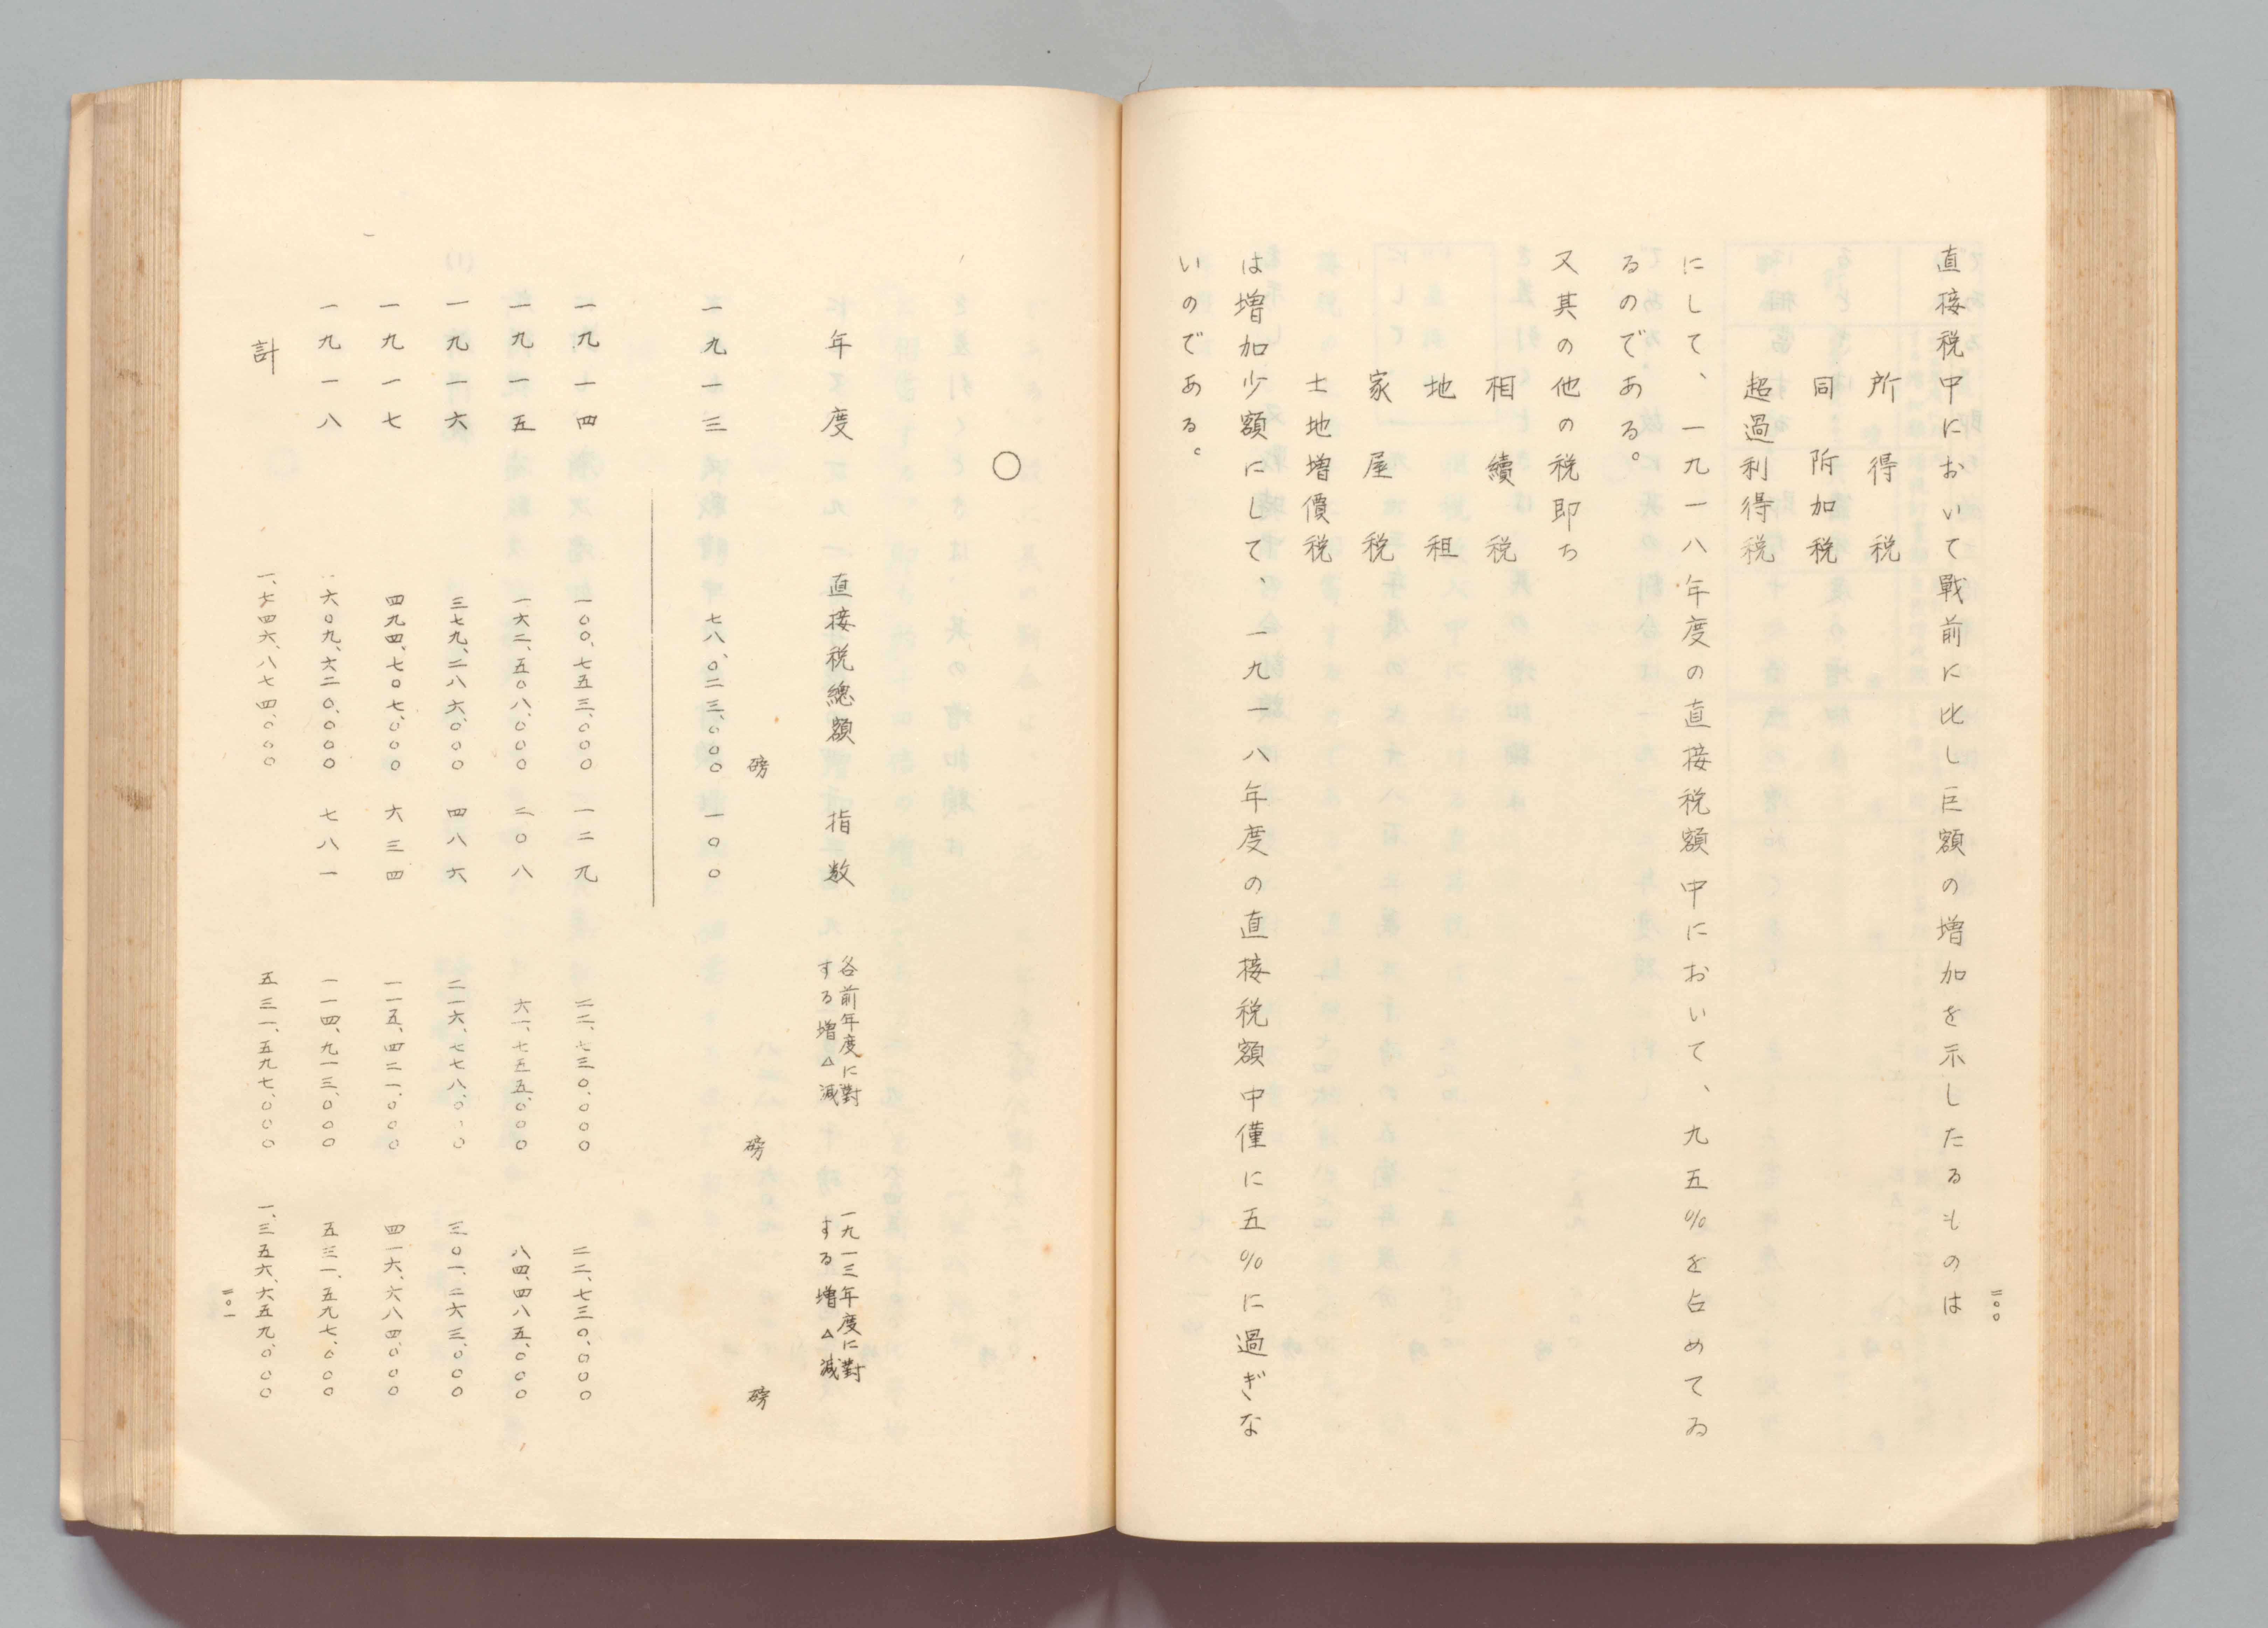 直接税中において戰前に比し巨額の増加を示したるものは
所得税
同附加税
超過利得税
にして、一九一八年度の直接税額中において、九五%を占めてゐ
るのである。
又其の他の税即ち
相續税
地租
家屋税
土地増價税
は増加少額にして、一九一八年度の直接税額中僅に五%に過ぎな
いのである。
二〇〇
○
年度 直接税總額 指数 各前年度に對する増△減 一九一三年度に對する増△減
磅 磅 磅
一九一三 七八、〇二三、〇〇〇 一〇〇
一九一四 一〇〇、七五三、〇〇〇 一二九 二二、七三〇、〇〇〇 二二、七三〇、〇〇〇
一九一五 一六二、五〇八、〇〇〇 二〇八 六一、七五五、〇〇〇 八四、四八五、〇〇〇
一九一六 三七九、二八六、〇〇〇 四八六 二一六、七七八、〇〇〇 三〇一、二六三、〇〇〇
一九一七 四九四、七〇七、〇〇〇 六三四 一一五、四二一、〇〇〇 四一六、六八四、〇〇〇
一九一八 六〇九、六二〇、〇〇〇 七八一 一一四、九一三、〇〇〇 五三一、五九七、〇〇〇
計 一、七四六、八七四、〇〇〇 五三一、五九七、〇〇〇 一、三五六、六五九、〇〇〇
二〇一